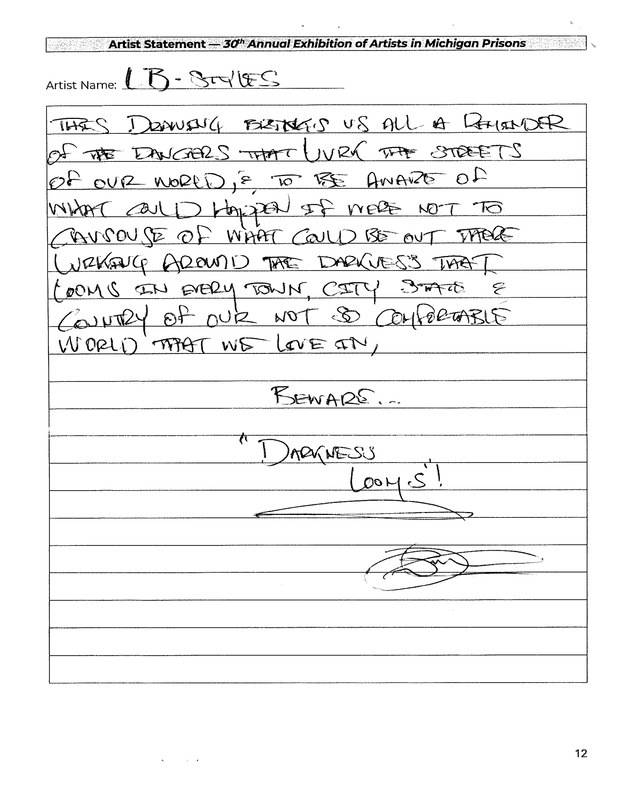 Artist Statement — 30th Annual Exhibition of Artists in Michigan Prisons
Artist Name: LB-STYLES
THIS DRAWING BRINGS US ALL A REMINDER
OF THE DANGERS THAT LURK THE STREETS
OF OUR WORLD, & TO BE AWARE OF
WHAT COULD HAppEN IF WERE NOT TO
CAUSOUSE OF WHAT COULD BE OUT THERE
LURKING AROUND THE DARKNESS THAT
LOOMS IN EVERY TOWN, CITY STATE &
COUNTRY OF OUR NOT SO COMFORTABLE
WORLD THAT WE LIVE IN,
BEWARE...
"DARKNESS
LOOMS"!
12